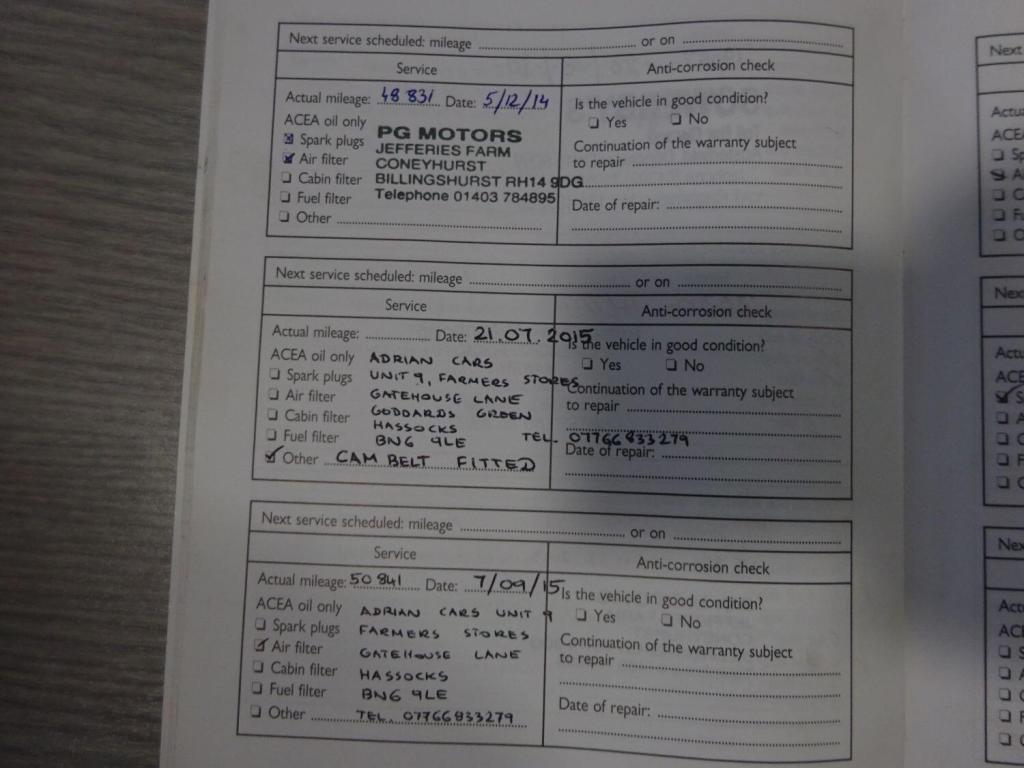 Next service scheduled: mileage or on
Service Anti-corrosion check
Actual mileage: 48 831 Date: 5/12/14 Is the vehicle in good condition?
ACEA oil only Yes No
Spark plugs PG MOTORS Continuation of the warranty subject
Air filter JEFFERIES FARM to repair
CONEYHURST
Cabin filter BILLINGSHURST RH14 9DG
Fuel filter Telephone 01403 784895 Date of repair:
Other
Next service scheduled: mileage or on
Service Anti-corrosion check
Actual mileage: Date: 21.07.2015 Is the vehicle in good condition?
ACEA oil only ADRIAN CARS Yes No
Spark plugs UNIT 9, FARMERS STORES Continuation of the warranty subject
Air filter GATEHOUSE LANE to repair
Cabin filter GODDARDS GREEN
HASSOCKS
Fuel filter BN6 9LE TEL. 07766833279
Other CAM BELT FITTED Date of repair:
Next service scheduled: mileage or on
Service Anti-corrosion check
Actual mileage: 50 841 Date: 7/09/15 Is the vehicle in good condition?
ACEA oil only ADRIAN CARS UNIT 9 Yes No
Spark plugs FARMERS STORES Continuation of the warranty subject
Air filter GATEHOUSE LANE to repair
Cabin filter HASSOCKS
Fuel filter BN6 9LE Date of repair:
Other TEL. 07766833279
Next